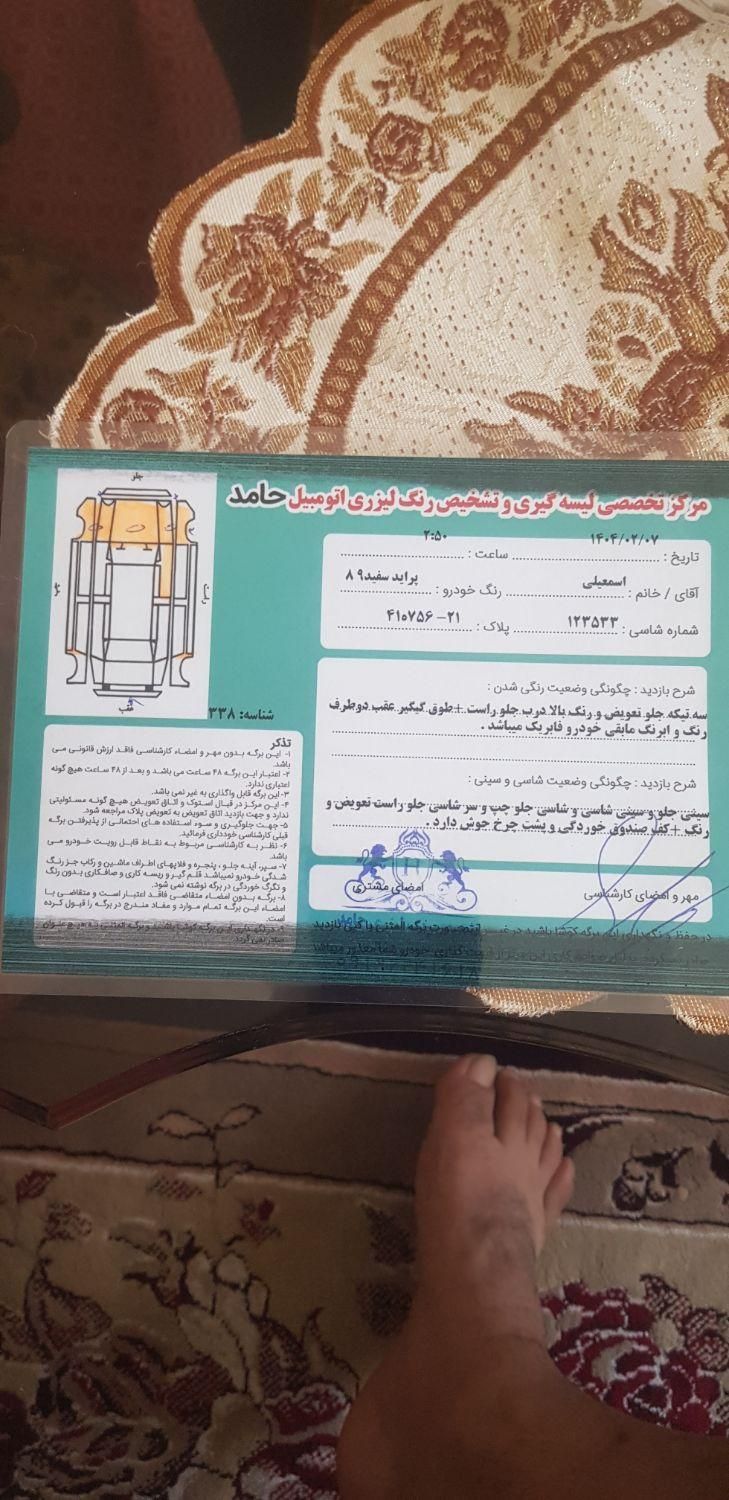 مرکز تخصصی لیسه گیری و تشخیص رنگ لیزری اتومبیل حامد
تاریخ : ۱۴۰۴/۰۲/۰۷ ساعت : ۲:۵۰
آقای / خانم : اسمعیلی رنگ خودرو : پراید سفید ۸۹
شماره شاسی : ۱۲۳۵۳۳ پلاک : ۲۱-۴۱۰۷۵۶
شرح بازدید : چگونگی وضعیت رنگی شدن :
سه تیکه جلو تعویض و رنگ بالا درب جلو راست + طوق گلگیر عقب دو طرف
رنگ و ابرنگ مابقی خودرو فابریک میباشد .
شرح بازدید : چگونگی وضعیت شاسی و سینی :
سینی جلو و سینی شاسی و شاسی جلو چپ و سر شاسی جلو راست تعویض و
رنگ + کف صندوق خوردگی و پشت چرخ جوش دارد .
مهر و امضای کارشناسی
امضای مشتری
جلو
راست
عقب
شناسه: ۳۳۸
تذکر
۱- این برگه بدون مهر و امضاء کارشناسی فاقد ارزش قانونی می
باشد.
۲- اعتبار این برگه ۴۸ ساعت می باشد و بعد از ۴۸ ساعت هیچ گونه
اعتباری ندارد.
۳- این برگه قابل واگذاری به غیر نمی باشد.
۴- این مرکز در قبال استوک و اتاق تعویض هیچ گونه مسئولیتی
ندارد و جهت بازدید اتاق تعویض به تعویض پلاک مراجعه شود.
۵- جهت جلوگیری و سوء استفاده های احتمالی از پذیرفتن برگه
قبلی کارشناسی خودداری فرمائید.
۶- نظر به کارشناسی مربوط به نقاط قابل رویت خودرو می
باشد.
۷- سپر، آینه جلو، پنجره و فلاپهای اطراف ماشین و رکاب جز رنگ
شدگی خودرو نمیباشد قلم گیر و ریسه کاری و صافکاری بدون رنگ
و تگرگ خوردگی در برگه نوشته نمی شود.
۸- برگه بدون امضاء متقاضی فاقد اعتبار است و متقاضی با
امضاء این برگه تمام موارد و مفاد مندرج در برگه را قبول کرده
است.